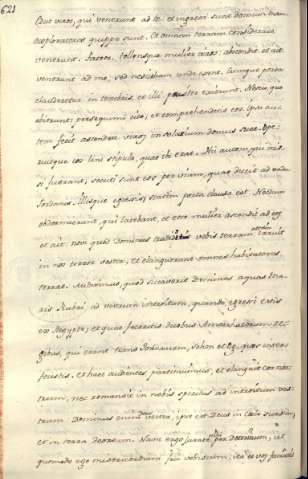 621
Educ viros, qui venerunt ad te et ingressi sunt domum tuam
exploratores quippe sunt, et omnem terram considerare
venerunt. Tollensque mulier viros abscondit et ait
venerunt ad me, sed nesciebam unde essent. Cumque porta
clauderetur in tenebris, et illi pariter exierunt. Nescio quo
abierunt persequimini cito, et comprehendetis eos. ipsa autem
fecit ascendere viros in solarium domus suae, ope-
ruitque eos lini stipula, quae ibi erat. Hii autem, qui missi
fuerant, secuti sunt eos per viam, quae ducit ad vadum
Jordanis. Illisque egressis, statim porta clausa est. Necdum
obdormierant, qui latebant, et ecce mulier ascendit ad eos
et ait. novi quod dominus tradiderit vobis terram etenim irruit
in nos terror vester, et elanguerunt omnes habitatores
terrae. Audivimus, quod siccaverit Dominus aquas ma-
ris Rubri ad vestrum introitum, quando egressi estis
ex Aegypto, et quae feceritis duobus Amorrhaeorum re-
gibus, qui erant trans Jordanem, Sehon et Og, quos inter
fecistis. et haec audientes pertimuimus, et elanguit cor nos-
trum, nec remansit in nobis spiritus ad introitum ves-
trum Dominus enim Deus vester, ipse est Deus in caelo sursum,
et in terra deorsum. Nunc ergo jurate mihi per Dominum, ut
quomodo ego misericordiam feci vobiscum, ita et vos faciatis